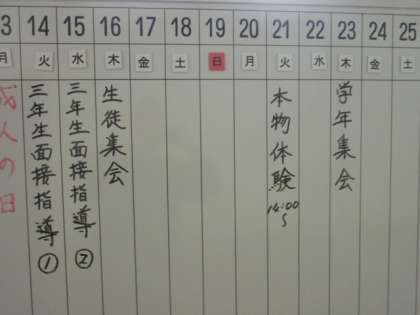 3 14 15 16 17 18 19 20 21 22 23 24 25
月 火 水 木 金 土 日 月 火 水 木 金 土
成人の日
三年生面接指導①
三年生面接指導②
生徒集会
本物体験
14:00
〜
学年集会